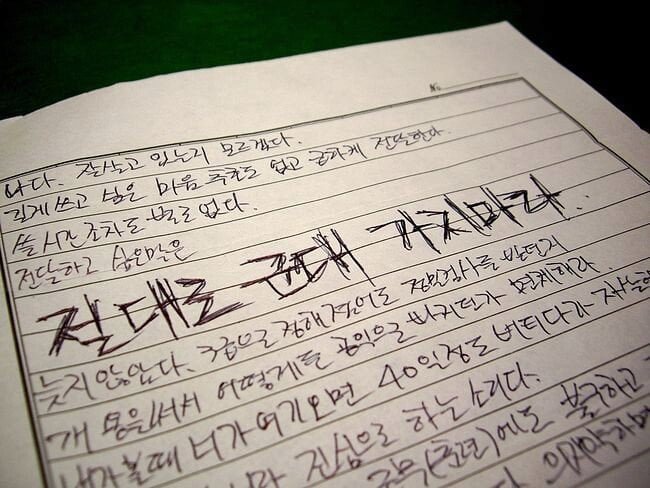 No
나다. 잘살고 있는지 모르겠다.
길게 쓰고 싶은 마음 추호도 없고 급하게 전달한다.
쓸 시간 조차도 별로 없다.
전달하고 싶은말은
절대로 군대 가지마라..
늦지 않았다. 3급으로 정해졌어도 정밀검사를 받던지
개 몸을써서 어떻게든 공익으로 빠지던가 면제해라
내가볼때 너가 여기오면 40일정도 버티다가
진심으로 하는 소리다.
에도 불구하고